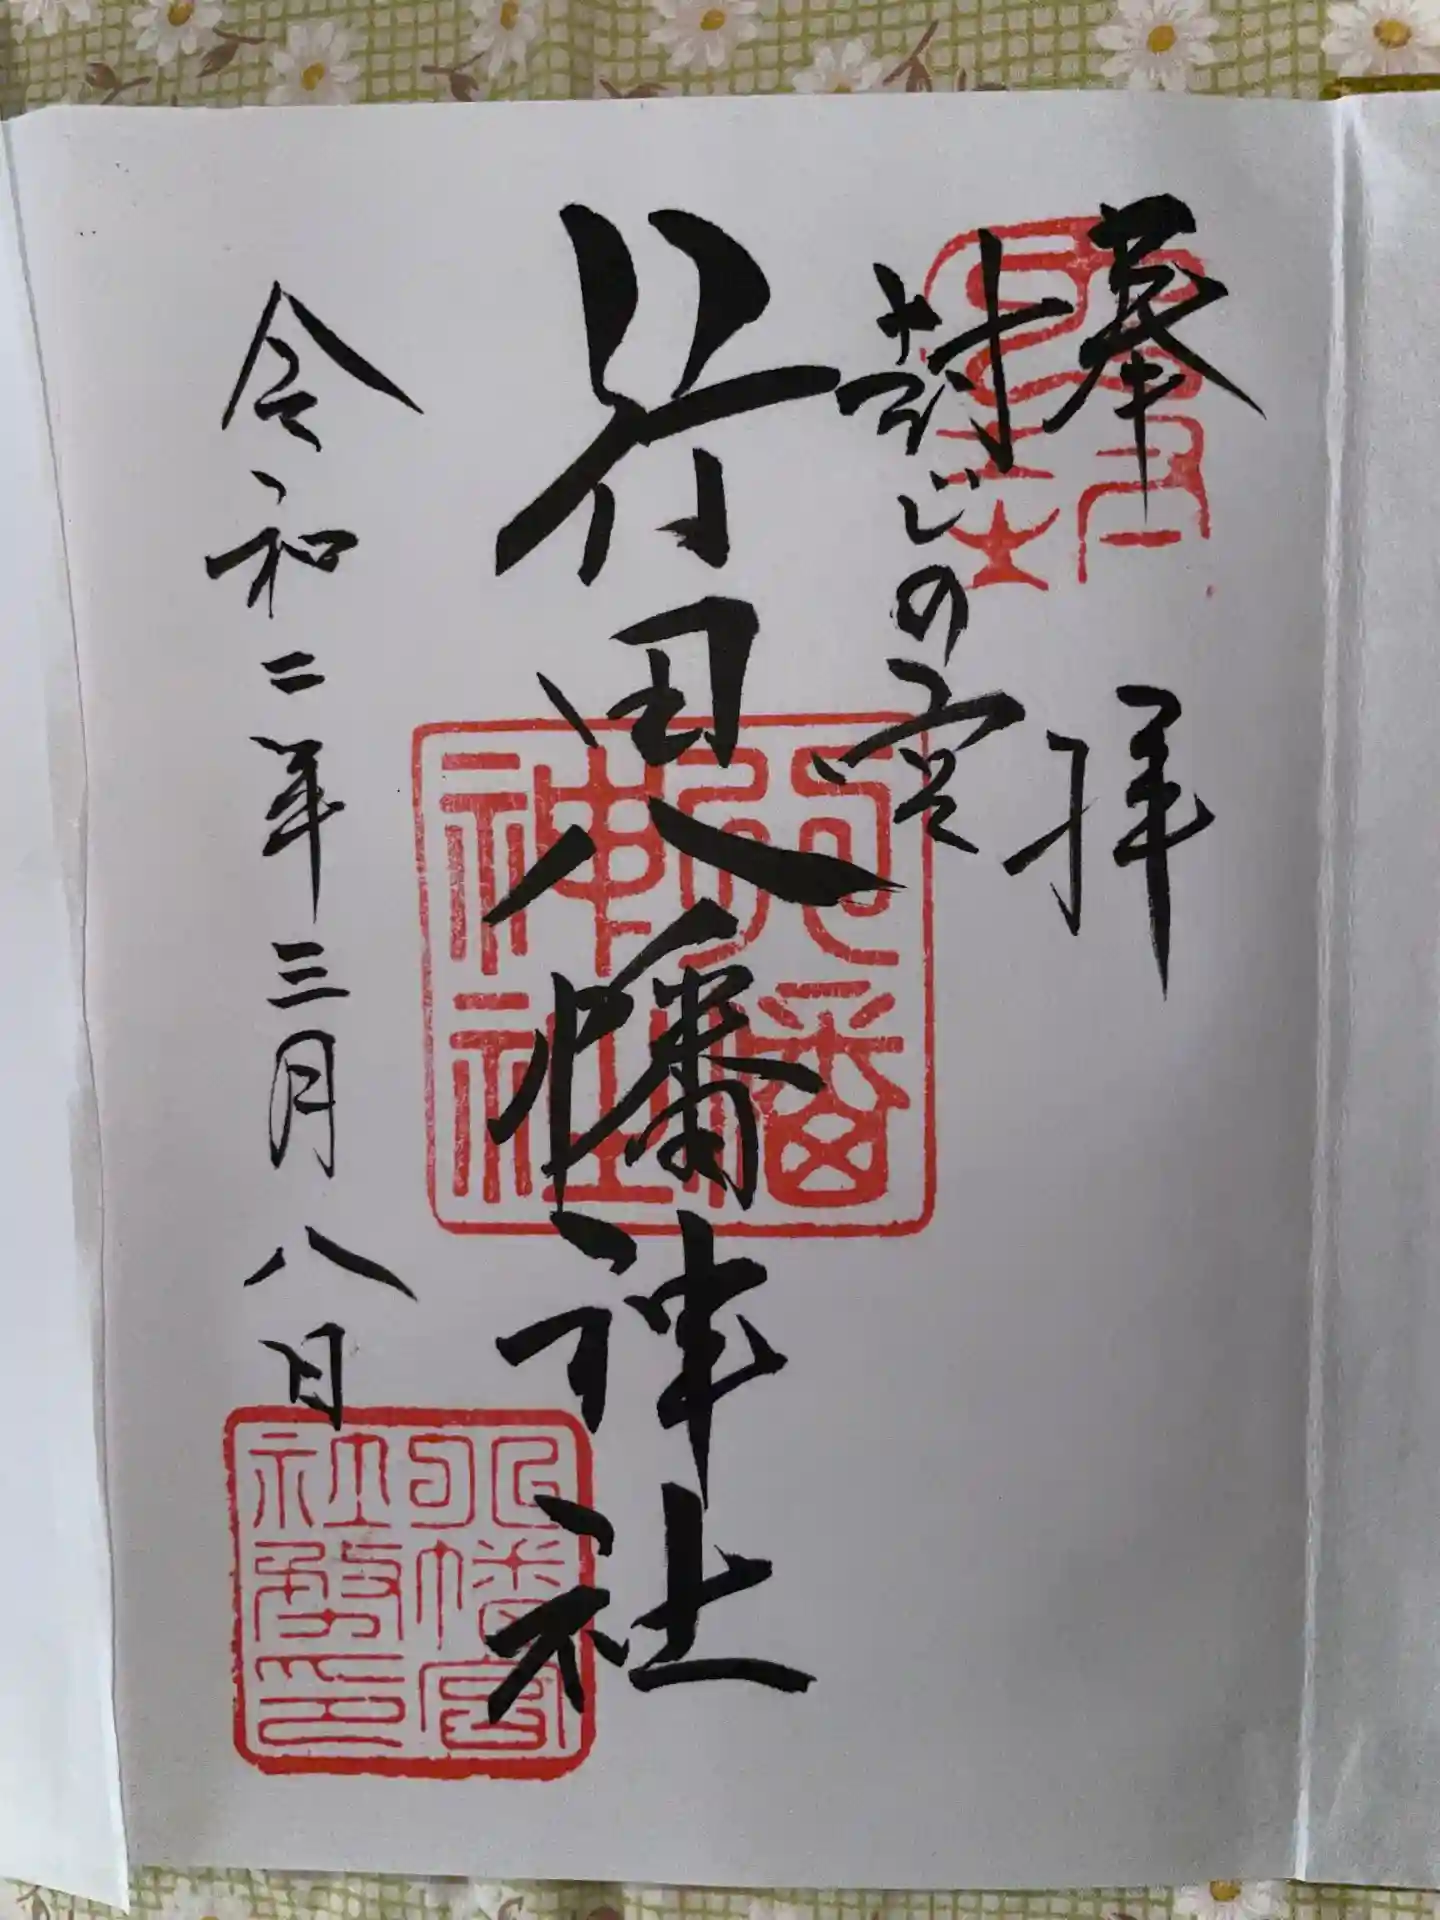 奉拝
封じの宮
行田八幡神社
令和二年三月八日
八幡
神社
八幡宮
社務印